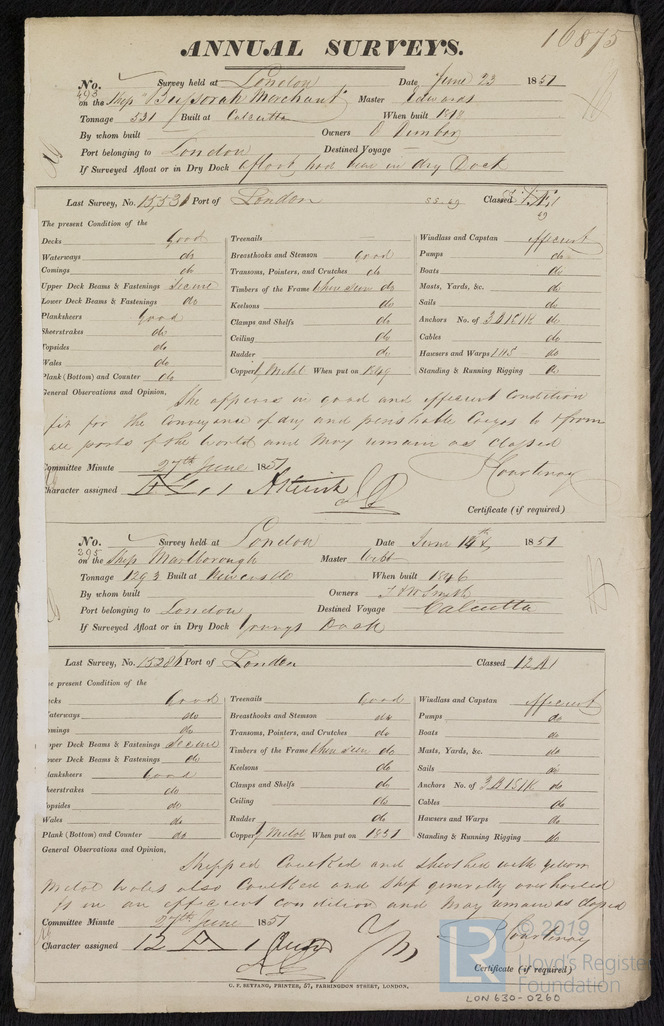 16875
ANNUAL SURVEYS.
No. 493 Survey held at London Date June 23 1851
on the Ship "Bussorah Merchant" Master Edwards
Tonnage 531 Built at Calcutta When built 1818
By whom built Owners
Port belonging to London Destined Voyage —
If Surveyed Afloat or in Dry Dock afloat had been in dry Dock
Last Survey, No. 15,531 Port of London Classed
The present Condition of the
Decks Good
Waterways do
Comings do
Upper Deck Beams & Fastenings Secure
Lower Deck Beams & Fastenings do
Planksheers Good
Sheerstrakes do
Topsides do
Wales do
Plank (Bottom) and Counter do
Treenails —
Breasthooks and Stemson Good
Transoms, Pointers, and Crutches do
Timbers of the Frame when seen do
Keelsons do
Clamps and Shelfs do
Ceiling do
Rudder do
Copper Y Metal When put on 1849
Windlass and Capstan efficient
Pumps do
Boats do
Masts, Yards, &c. do
Sails do
Anchors No. of 3 B 1 S 1 K do
Cables do
Hawsers and Warps do
Standing & Running Rigging do
General Observations and Opinion, She appears in good and efficient condition
fit for the conveyance of dry and perishable Cargoes to & from
all parts of the World and may remain as classed
Committee Minute 27th June 1851 Courtenay
Character assigned
Certificate (if required)
No. 395 Survey held at London Date June 1851
on the Ship Marlborough Master Webb
Tonnage 1293 Built at Newcastle When built 1846
By whom built Owners T & W Smith
Port belonging to London Destined Voyage Calcutta
If Surveyed Afloat or in Dry Dock Youngs Dock
Last Survey, No. 15286 Port of London Classed 12 A1
The present Condition of the
Decks Good
Waterways do
Comings do
Upper Deck Beams & Fastenings Secure
Lower Deck Beams & Fastenings do
Planksheers Good
Sheerstrakes do
Topsides do
Wales do
Plank (Bottom) and Counter do
Treenails Good
Breasthooks and Stemson do
Transoms, Pointers, and Crutches do
Timbers of the Frame when seen do
Keelsons do
Clamps and Shelfs do
Ceiling do
Rudder do
Copper Y Metal When put on 1851
Windlass and Capstan efficient
Pumps do
Boats do
Masts, Yards, &c. do
Sails do
Anchors No. of 3 B 1 S 1 K do
Cables do
Hawsers and Warps do
Standing & Running Rigging do
General Observations and Opinion,
Stripped Caulked and Sheathed with yellow
Metal Wales also Caulked and Ship generally overhauled
Is in an efficient condition and may remain as classed
Committee Minute 27th June 1851 Courtenay
Character assigned 12 A 1
Certificate (if required)
G. F. SEYFANG, PRINTER, 57, FARRINGDON STREET, LONDON.
LR © 2019
Lloyd's Register
Foundation
LON630-0260